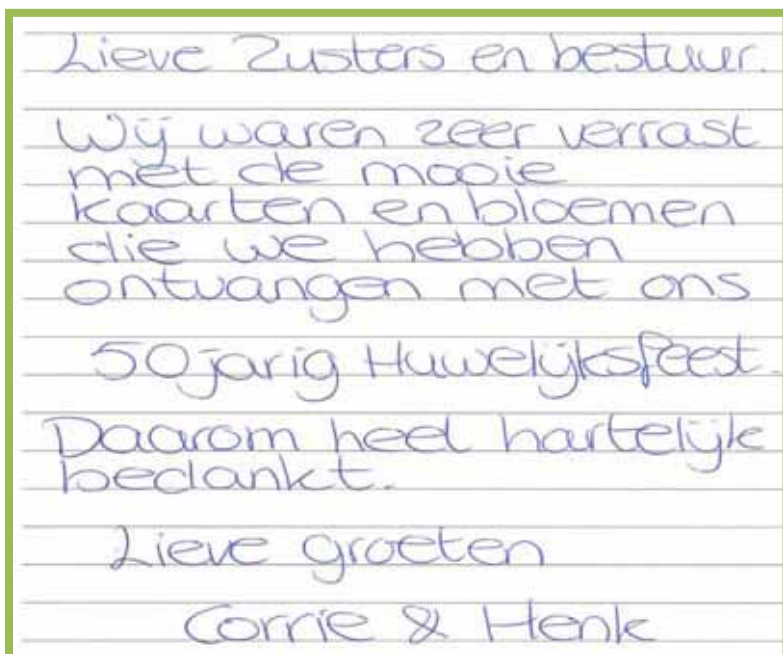 Lieve Zusters en bestuur.
Wij waren zeer verrast
met de mooie
kaarten en bloemen
die we hebben
ontvangen met ons
50 jarig Huwelijksfeest.
Daarom heel hartelijk
bedankt.
Lieve groeten
Corrie & Henk